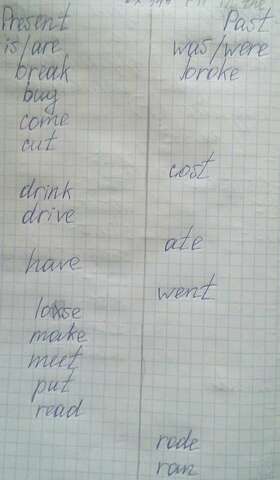 Present Past
is/are was/were
break broke
buy
come
cut
cost
drink
drive
ate
have
went
lose
make
meet
put
read
rode
ran